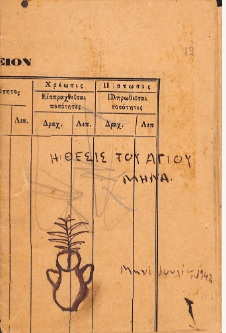 13
ΕΙΟΝ
Χρέωσις
Πίστωσις
Εἰσπραχθεῖσαι
ποσότητες
Πληρωθεῖσαι
ποσότητες
Λεπ.
Δραχ.
Λεπ.
Δραχ.
Λεπ
Η ΘΕΣΙΣ ΤΟΥ ΑΓΙΟΥ
ΜΗΝΑ.